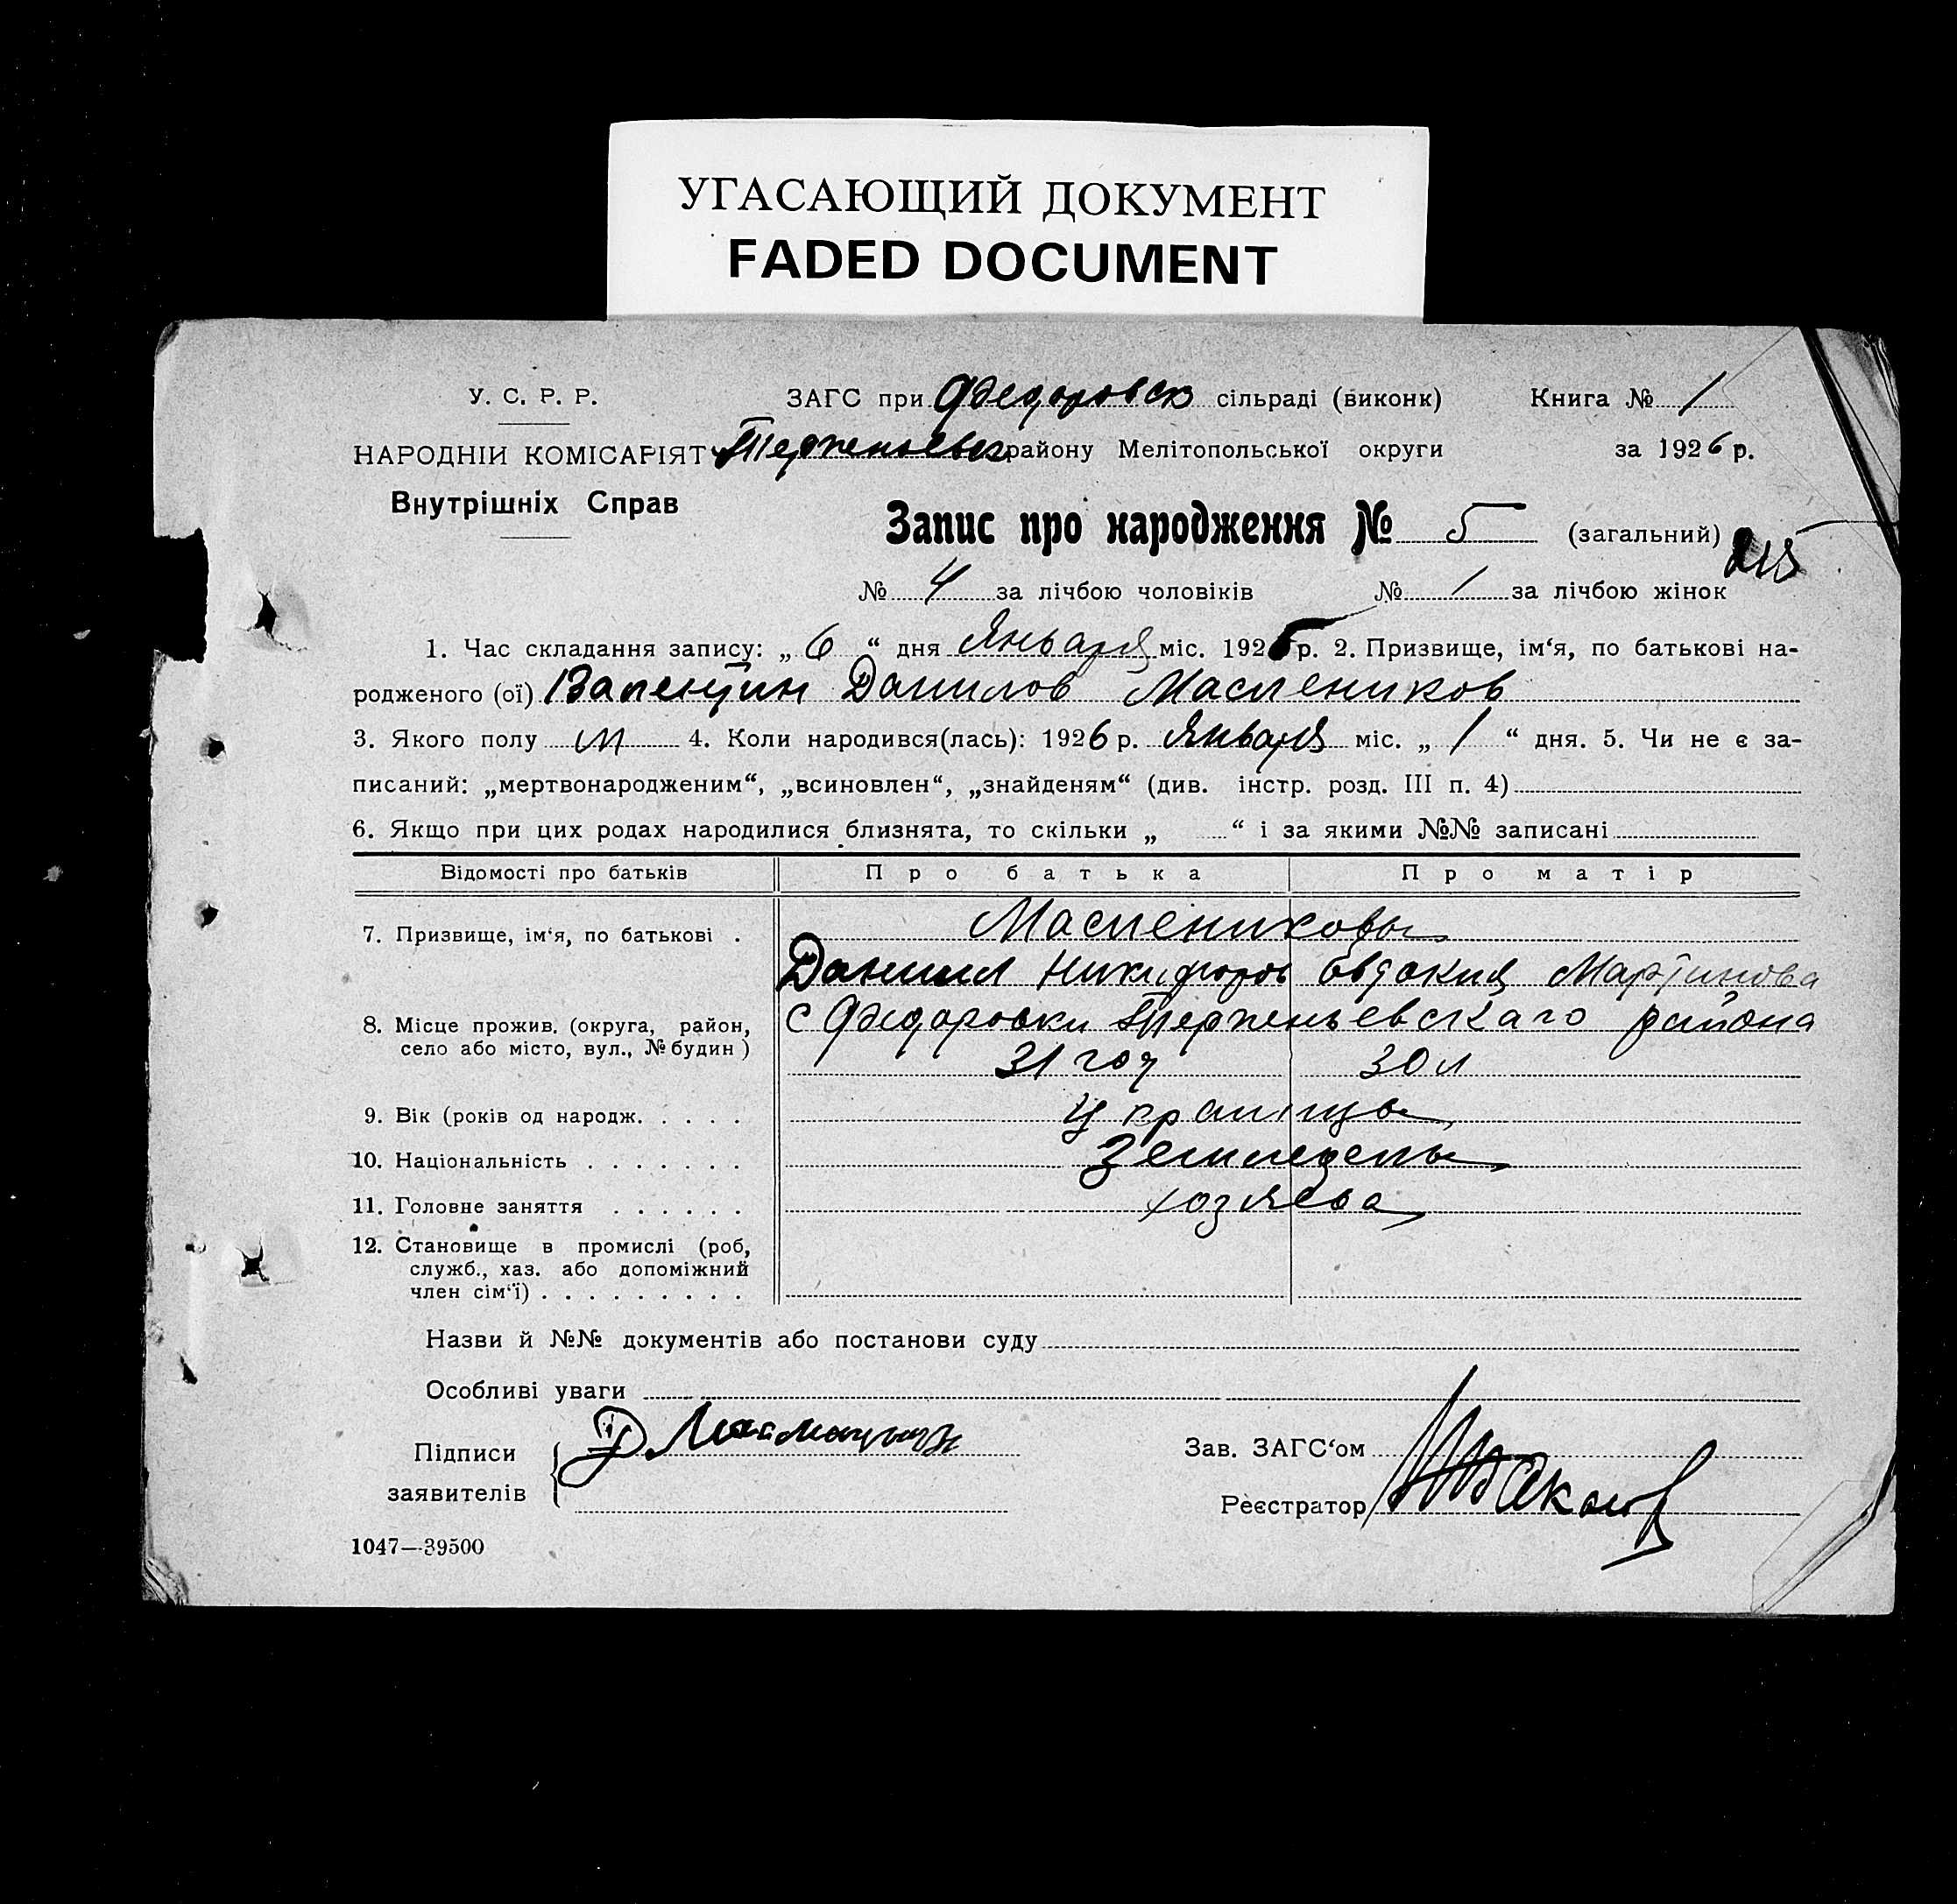 УГАСАЮЩИЙ ДОКУМЕНТ
FADED DOCUMENT
У. С. Р. Р.
ЗАГС при Федоровск сільраді (виконк)
Книга № 1
НАРОДНІЙ КОМІСАРІЯТ
Терпеньевск району Мелітопольської округи
за 1926 р.
Внутрішніх Справ
Запис про народження № 5 (загальний)
№ 4 за лічбою чоловіків № 1 за лічбою жінок
1. Час складання запису: „ 6 “ дня Января міс. 1926 р. 2. Призвище, ім‘я, по батькові на-
родженого (ої) Валентин Данилов Маслеников
3. Якого полу м 4. Коли народився(лась): 1926 р. Января міс. „ 1 “ дня. 5. Чи не є за-
писаний: „мертвонародженим“, „всиновлен“, „знайденям“ (див. інстр. розд. III п. 4)
6. Якщо при цих родах народилися близнята, то скільки „ “ і за якими №№ записані
Відомості про батьків Про батька Про матір
Маслениковы
7. Призвище, ім‘я, по батькові .
Даниил Никифоров Евдокия Мартинова
8. Місце прожив. (округа, район,
село або місто, вул., № будин )
с Федоровки Терпеньевскаго района
31 год 30 л
9. Вік (років од народж. . . . .
Украинцы
10. Національність . . . . . . .
Земледельцы
11. Головне заняття . . . . . .
хозяева
12. Становище в промислі (роб,
служб., хаз. або допоміжний
член сім‘ї) . . . . . . . . .
Назви й №№ документів або постанови суду
Особливі уваги
Підписи
заявителів
Зав. ЗАГС‘ом
Реєстратор
1047—39500